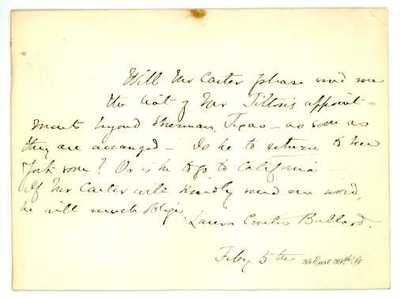 Will Mr Carter please send me
the list of Mr Tilton's appoint-
ments beyond Sherman, Texas - as soon as
they are arranged - Is he to return to New
York soon? Or is he to go to California -
If Mr Carter will kindly send me word,
he will much oblige
Laura Curtis Bullard.
Feby 5th